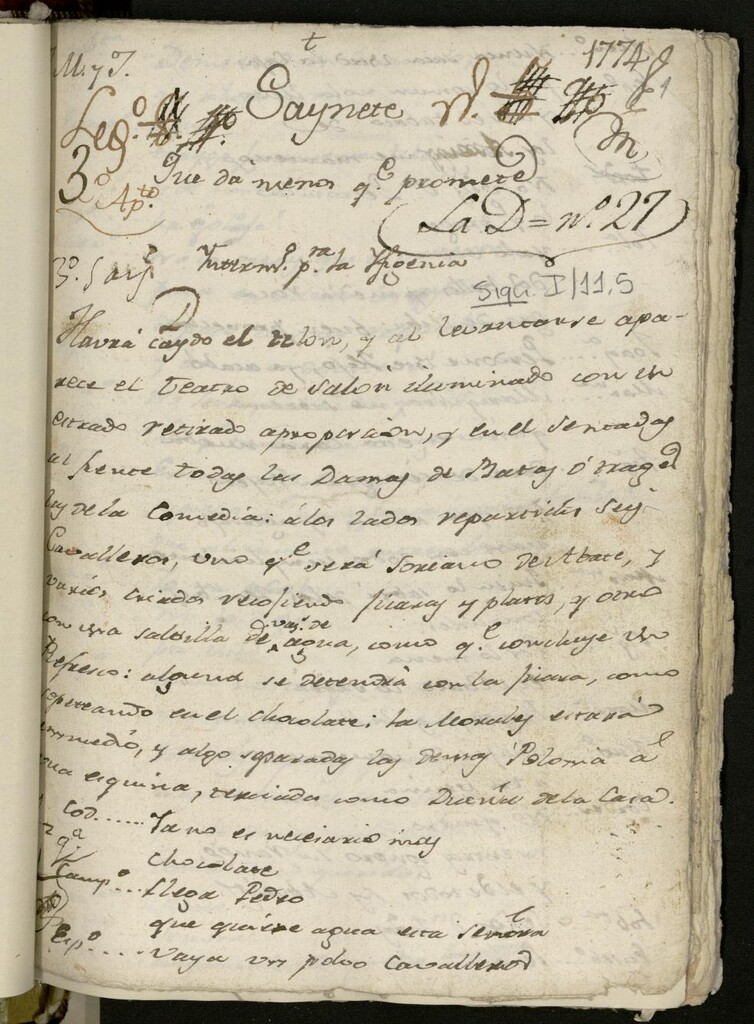 M. y J.
1774
Leg.º Saynete
3º Ap.to
Que da menos q.e promete
La D = nº. 27
3º. Say.te Interm.º p.ra la Ifigenia
Sign. I/11.5
Havrá caydo el telon, y al levantarse apa-
rece el teatro de salón iluminado con un
estrado retirado aproporcion, y en el sentadas
al frente todas las Damas de Batas ó trages
los de la Comedia: á los lados repartidos seys
Cavalleros, uno q.e será Soriano de Abate, y
varios criados recojiendo jicaras y platos, y otro
con una salvilla de vas.s de agua, como q.e concluye un
Refresco: alguna se detendrá con la jicara, como
sopeteando en el chocolate: la Morales estará
enmedio, y algo separadas las demas Polonia á
una esquina, terciada como Dueña de la Casa.
Cod...... Ya no es necesario mas
chocolate
Camp.º... Llega Pedro
que quiere agua esta señora
Esp.º.... Vaya un polvo Cavalleros